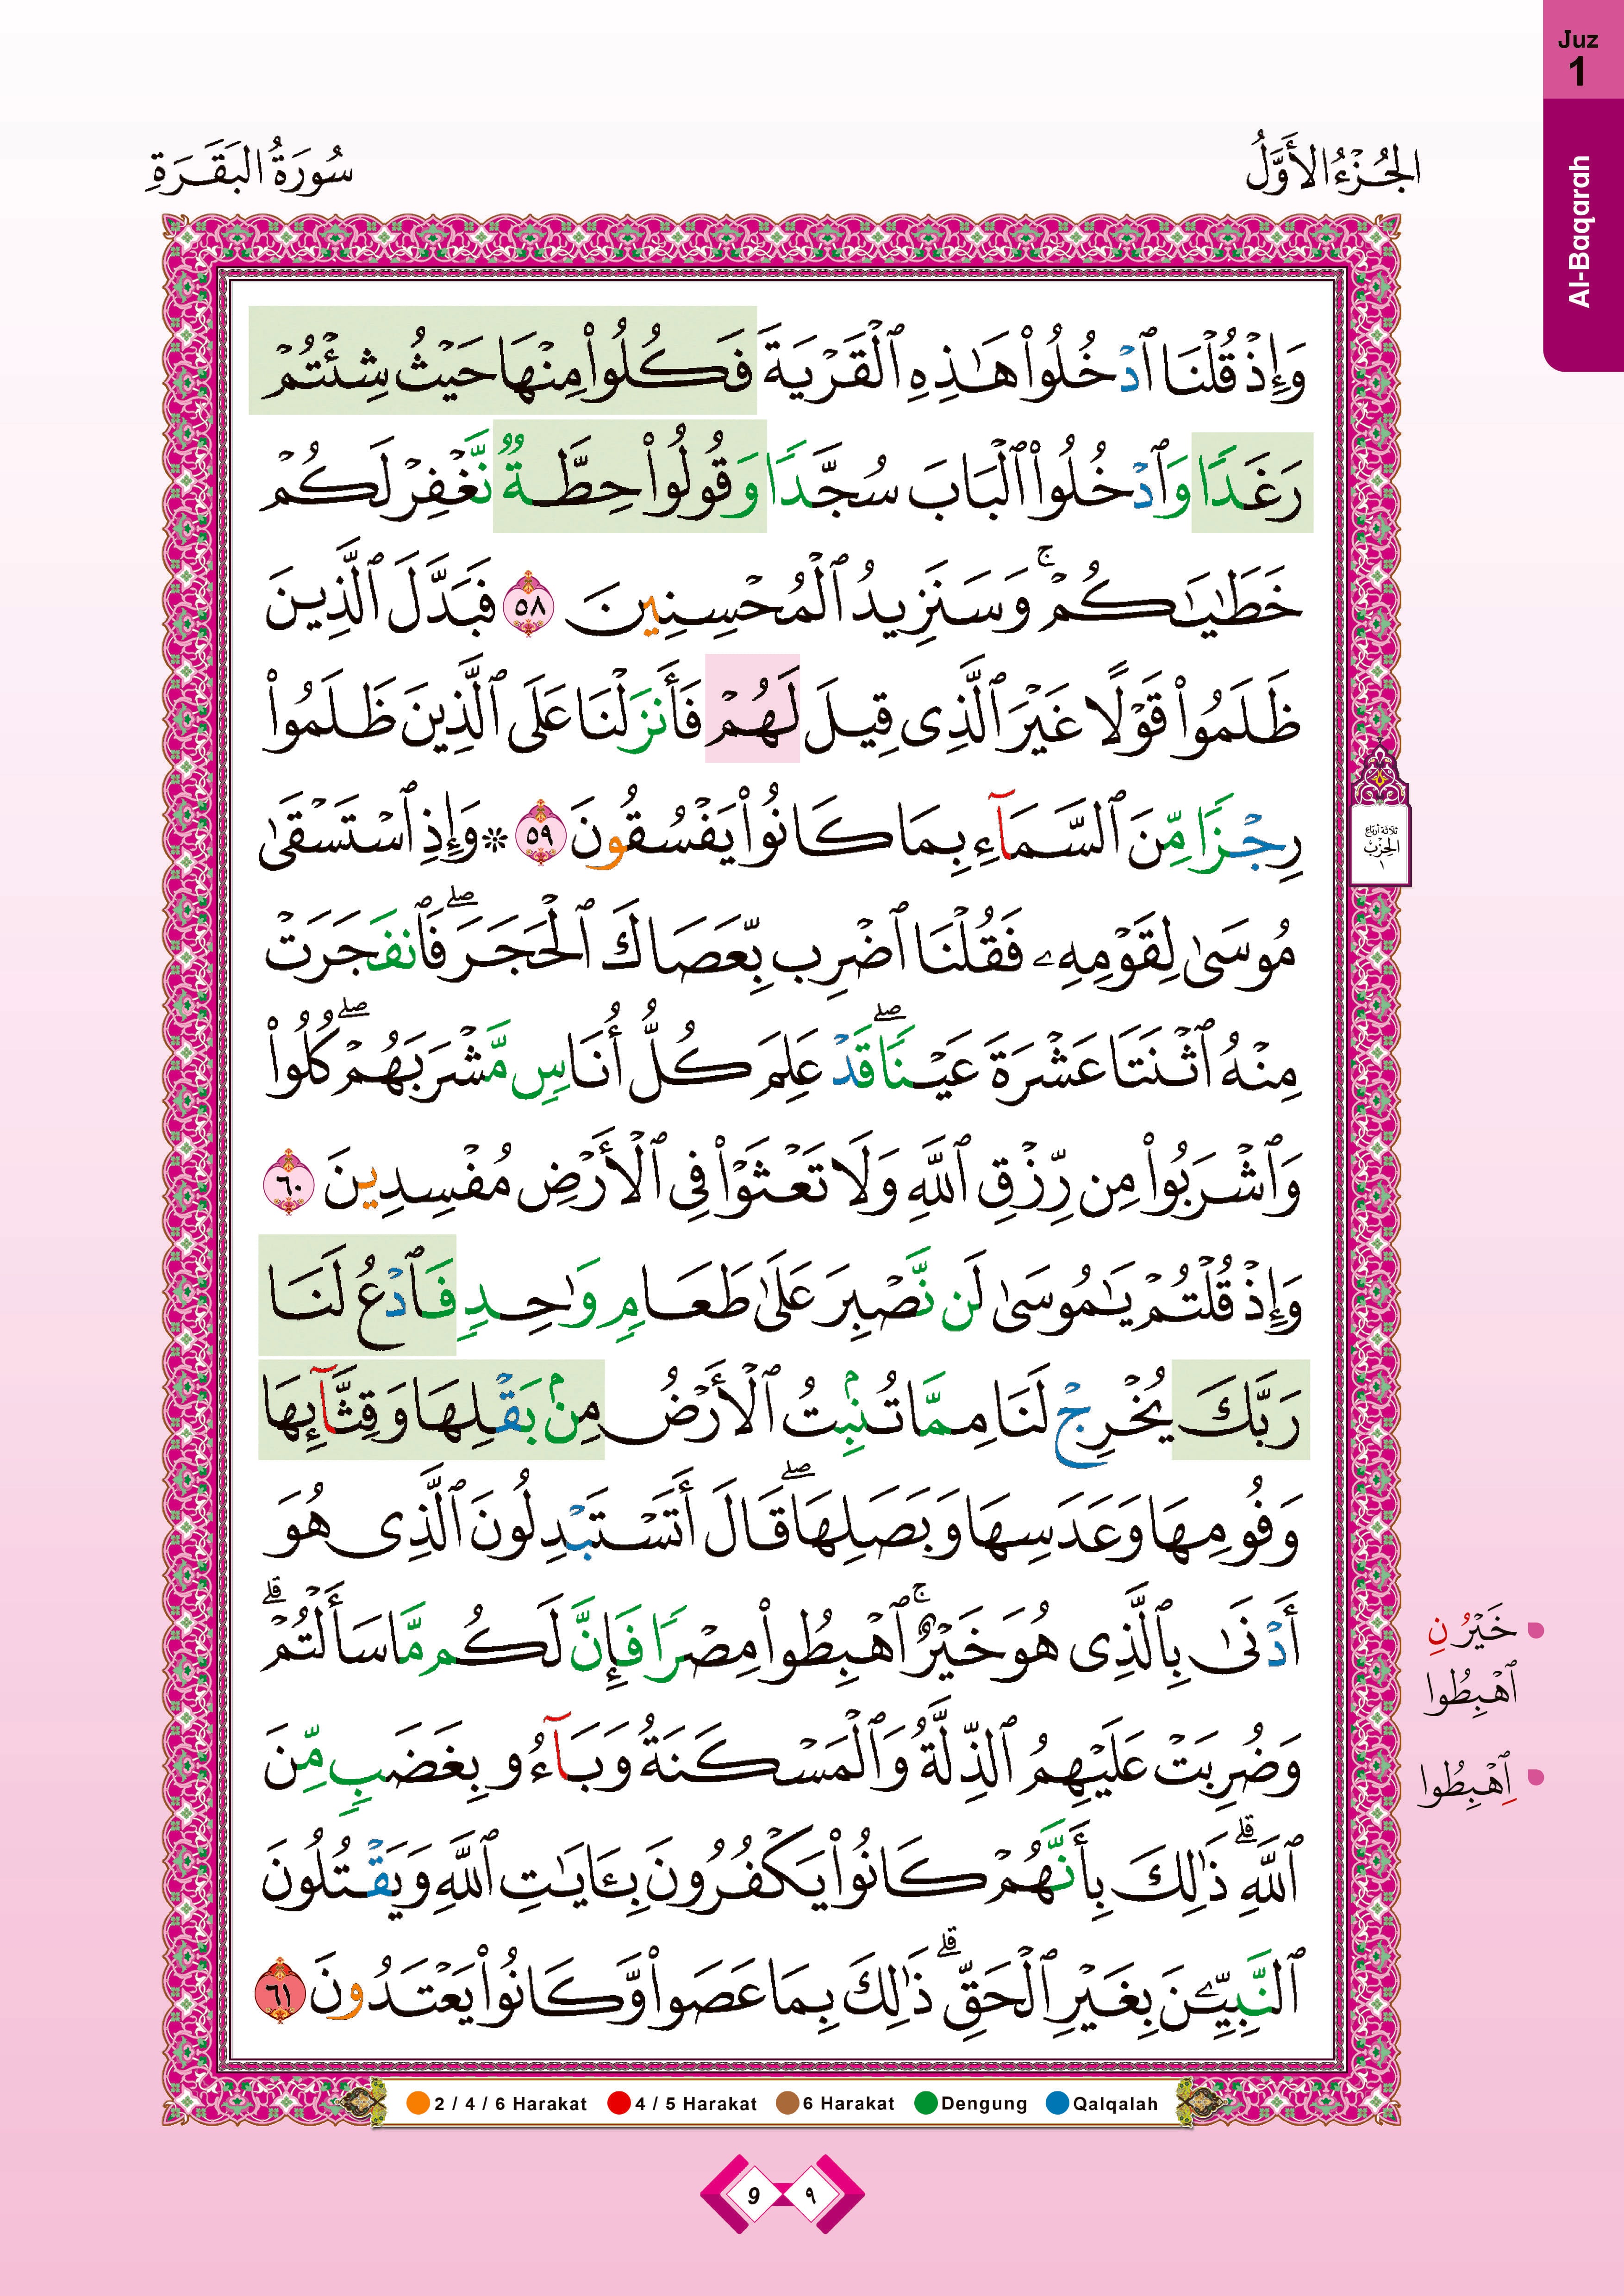 Juz
1
Al-Baqarah
الجُزْءُ الأَوَّلُ
سُورَةُ البَقَرَةِ
وَإِذْ قُلْنَا ٱدْخُلُوا۟ هَـٰذِهِ ٱلْقَرْيَةَ فَكُلُوا۟ مِنْهَا حَيْثُ شِئْتُمْ
رَغَدًا وَٱدْخُلُوا۟ ٱلْبَابَ سُجَّدًا وَقُولُوا۟ حِطَّةٌ نَّغْفِرْ لَكُمْ
خَطَـٰيَـٰكُمْ ۚ وَسَنَزِيدُ ٱلْمُحْسِنِينَ ٥٨ فَبَدَّلَ ٱلَّذِينَ
ظَلَمُوا۟ قَوْلًا غَيْرَ ٱلَّذِى قِيلَ لَهُمْ فَأَنزَلْنَا عَلَى ٱلَّذِينَ ظَلَمُوا۟
رِجْزًا مِّنَ ٱلسَّمَآءِ بِمَا كَانُوا۟ يَفْسُقُونَ ٥٩ ۞ وَإِذِ ٱسْتَسْقَىٰ
مُوسَىٰ لِقَوْمِهِۦ فَقُلْنَا ٱضْرِب بِّعَصَاكَ ٱلْحَجَرَ ۖ فَٱنفَجَرَتْ
مِنْهُ ٱثْنَتَا عَشْرَةَ عَيْنًا ۖ قَدْ عَلِمَ كُلُّ أُنَاسٍ مَّشْرَبَهُمْ ۖ كُلُوا۟
وَٱشْرَبُوا۟ مِن رِّزْقِ ٱللَّهِ وَلَا تَعْثَوْا۟ فِى ٱلْأَرْضِ مُفْسِدِينَ ٦٠
وَإِذْ قُلْتُمْ يَـٰمُوسَىٰ لَن نَّصْبِرَ عَلَىٰ طَعَامٍ وَٰحِدٍ فَٱدْعُ لَنَا
رَبَّكَ يُخْرِجْ لَنَا مِمَّا تُنۢبِتُ ٱلْأَرْضُ مِنۢ بَقْلِهَا وَقِثَّآئِهَا
وَفُومِهَا وَعَدَسِهَا وَبَصَلِهَا ۖ قَالَ أَتَسْتَبْدِلُونَ ٱلَّذِى هُوَ
أَدْنَىٰ بِٱلَّذِى هُوَ خَيْرٌ ۚ ٱهْبِطُوا۟ مِصْرًا فَإِنَّ لَكُم مَّا سَأَلْتُمْ ۗ
وَضُرِبَتْ عَلَيْهِمُ ٱلذِّلَّةُ وَٱلْمَسْكَنَةُ وَبَآءُو بِغَضَبٍ مِّنَ
ٱللَّهِ ۗ ذَٰلِكَ بِأَنَّهُمْ كَانُوا۟ يَكْفُرُونَ بِـَٔايَـٰتِ ٱللَّهِ وَيَقْتُلُونَ
ٱلنَّبِيِّـۧنَ بِغَيْرِ ٱلْحَقِّ ۗ ذَٰلِكَ بِمَا عَصَوا۟ وَّكَانُوا۟ يَعْتَدُونَ ٦١
ثلاثة أرباع
الحِزْبُ
١
خَيْرُ نِ
ٱهْبِطُوا
اِهْبِطُوا
2 / 4 / 6 Harakat 4 / 5 Harakat 6 Harakat Dengung Qalqalah
9 ٩